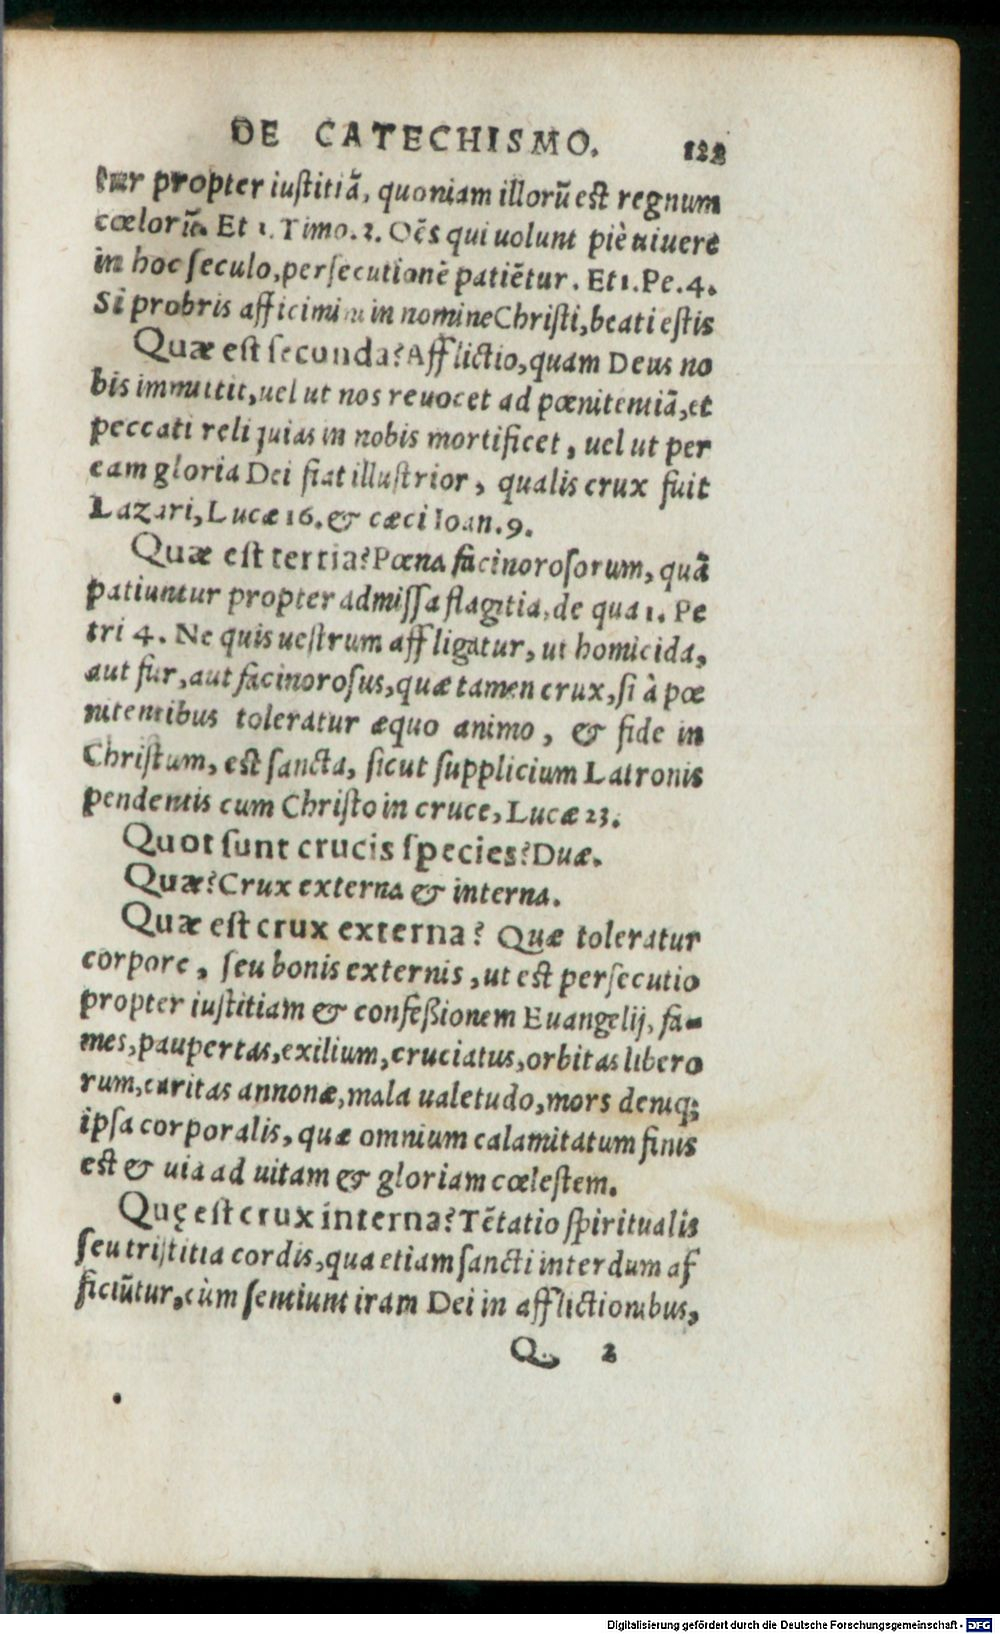 DE CATECHISMO. 122
tur propter iustitiā, quoniam illorū est regnum
cœlorū. Et 1. Timo. 2. Oēs qui uolunt piè uiuere
in hoc seculo, persecutionē patiētur. Et 1. Pe. 4.
Si probris afficimini in nomine Christi, beati estis
Quæ est secunda? Afflictio, quam Deus no
bis immittit, uel ut nos reuocet ad pœnitentiā, et
peccati reliquias in nobis mortificet, uel ut per
eam gloria Dei fiat illustrior, qualis crux fuit
Lazari, Lucæ 16. & cæci Ioan. 9.
Quæ est tertia? Pœna facinorosorum, quā
patiuntur propter admissa flagitia, de qua 1. Pe
tri 4. Ne quis uestrum affligatur, ut homicida,
aut fur, aut facinorosus, quæ tamen crux, si à pœ
nitentibus toleratur æquo animo, & fide in
Christum, est sancta, sicut supplicium Latronis
pendentis cum Christo in cruce, Lucæ 23.
Quot sunt crucis species? Duæ.
Quæ? Crux externa & interna.
Quæ est crux externa? Quæ toleratur
corpore, seu bonis externis, ut est persecutio
propter iustitiam & confeßionem Euangelij, fa-
mes, paupertas, exilium, cruciatus, orbitas libero
rum, caritas annonæ, mala ualetudo, mors deniq;
ipsa corporalis, quæ omnium calamitatum finis
est & uia ad uitam & gloriam cœlestem.
Quę est crux interna? Tētatio spiritualis
seu tristitia cordis, qua etiam sancti interdum af
ficiūtur, cùm sentiunt iram Dei in afflictionibus,
Q 2
Digitalisierung gefördert durch die Deutsche Forschungsgemeinschaft - DFG